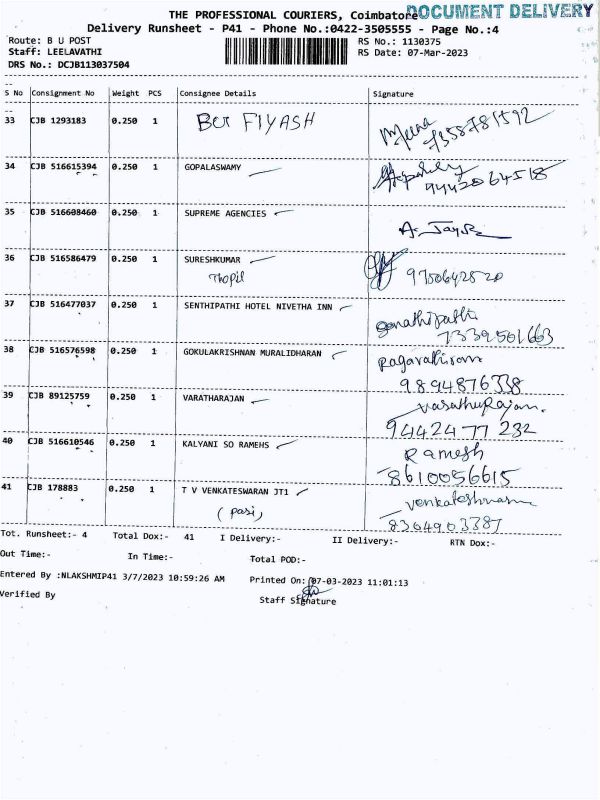 DOCUMENT DELIVERY
THE PROFESSIONAL COURIERS, Coimbatore
Delivery Runsheet - P41 - Phone No.:0422-3505555 - Page No.:4
Route: B U POST RS No.: 1130375
Staff: LEELAVATHI RS Date: 07-Mar-2023
DRS No.: DCJB113037504
S No Consignment No Weight PCS Consignee Details Signature
33 CJB 1293183 0.250 1 BOT FIYASH Meena
7358781592
34 CJB 516615394 0.250 1 GOPALASWAMY
9442064518
35 CJB 516608460 0.250 1 SUPREME AGENCIES
36 CJB 516586479 0.250 1 SURESHKUMAR
Thopil
37 CJB 516477037 0.250 1 SENTHIPATHI HOTEL NIVETHA INN
7339501663
38 CJB 516576598 0.250 1 GOKULAKRISHNAN MURALIDHARAN
9894876338
39 CJB 89125759 0.250 1 VARATHARAJAN
9442477232
40 CJB 516610546 0.250 1 KALYANI SO RAMEHS Ramesh
8610056615
41 CJB 178883 0.250 1 T V VENKATESWARAN JT1
(pasi)
8364903387
Tot. Runsheet:- 4 Total Dox:- 41 I Delivery:- II Delivery:- RTN Dox:-
Out Time:- In Time:- Total POD:-
Entered By :NLAKSHMIP41 3/7/2023 10:59:26 AM Printed On: 07-03-2023 11:01:13
Verified By Staff Signature